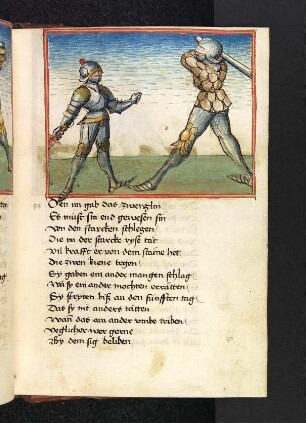 Den im gab das zwerglin
Es must sin end gewesen sin
Von den starcken schlegen
Die in der starcke ryse tät
Vil krafft er von dem stame het
Die zwen kiene tegen
Sy gaben ein ander mangen schlag
Wa sy ein ander mochten
Sy stryten biß an den funfften tag
Das sy nit anders tätten
Wan das ein ander vmbe triben
yeglicher wer gerne
By dem sig beliben